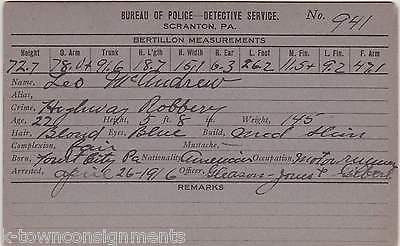 BUREAU OF POLICE—DETECTIVE SERVICE.
SCRANTON, PA.
No. 941
BERTILLON MEASUREMENTS
Height O. Arm Trunk H. L'gth H. Width R. Ear L. Foot M. Fin. L. Fin. F. Arm
72.7 78.0+ 91.6 18.7 15.1 6.3 26.2 11.5+ 9.2 47.1
Name, Leo McAndrew
Alias,
Crime, Highway Robbery
Age, 22 Height, 5 ft 8 in Weight, 145
Hair, Blond Eyes, Blue Build, Med Slim
Complexion, Fair Mustache,
Born, Forest City Pa Nationality American Occupation, Motorman
Arrested, April 26-1916 Officer, Gleason-Jones &
REMARKS
© k-townconsignments